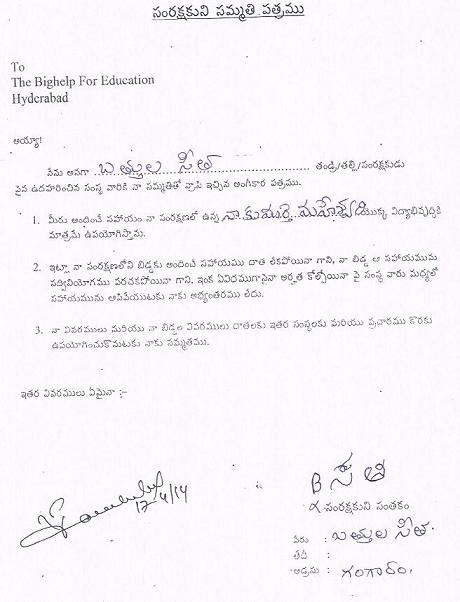 సంరక్షకుని సమ్మతి పత్రము
To
The Bighelp For Education
Hyderabad
అయ్యా!
నేను అనగా బత్తుల సీత తండ్రి/తల్లి/సంరక్షకుడు
పైన ఉదహరించిన సంస్థ వారికి నా సమ్మతితో వ్రాసి ఇచ్చిన అంగీకార పత్రము.
1. మీరు అందించే సహాయం నా సంరక్షణలో ఉన్న నా కుమార్తె మహేశ్వరి యొక్క విద్యాభివృద్ధికి
మాత్రమే ఉపయోగిస్తాను.
2. ఇట్లా నా సంరక్షణలోని బిడ్డకు అందించే సహాయము దాత లేకపోయినా గాని, నా బిడ్డ ఆ సహాయమును
సద్వినియోగము పరచకపోయినా గాని, ఇంక ఏవిధముగానైనా అర్హత కోల్పోయినా పై సంస్థ వారు మధ్యలో
సహాయమును ఆపివేయుటకు నాకు అభ్యంతరము లేదు.
3. నా వివరములు మరియు నా బిడ్డల వివరములు దాతలకు ఇతర సంస్థలకు మరియు ప్రచారము కొరకు
ఉపయోగించుకొనుటకు నాకు సమ్మతము.
ఇతర వివరములు ఏమైనా :-
12/4/14
B సీత
సంరక్షకుని సంతకం
పేరు : బత్తుల సీత.
తేదీ :
అడ్రసు : గంగారం.